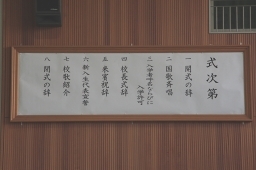 式次第
一 開式の辞
二 国歌斉唱
三 入学者呼名ならびに
入学許可
四 校長式辞
五 来賓祝辞
六 新入生代表宣誓
七 校歌紹介
八 閉式の辞